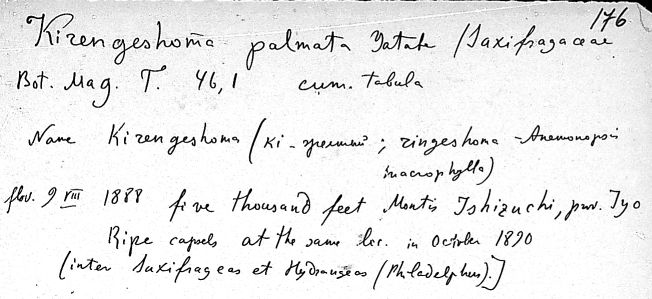 176
Kirengeshoma palmata Yatabe (Saxifragaceae
Bot. Mag. T. 46, 1 cum. tabula
Name Kirengeshoma (ki - ; ringeshoma - Anemonopsis
macrophylla)
flor. 9 VIII 1888 five thousand feet Montis Ishizuchi, prov. Iyo
Ripe capsels at the same loc. in October 1890
(inter Saxifrageas et Hydrangeas (Philadelphus).]